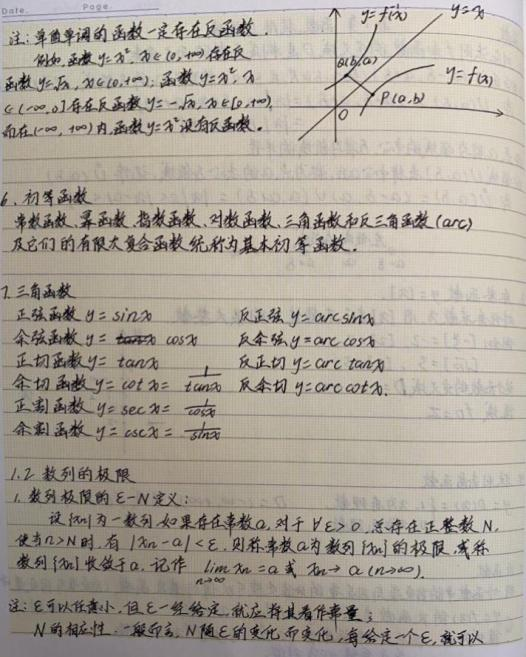 Date. Page.
注:单值单调的函数一定存在反函数.
例如,函数y=x², x∈(0,+∞)存在反
函数y=√x, x∈(0,+∞);函数y=x², x
∈(-∞,0]存在反函数y=-√x, x∈[0,+∞),
而在(-∞,+∞)内,函数y=x²没有反函数.
y=f(x)
y=x
Q(b,a)
y=f(x)
P(a,b)
O
x
6.初等函数
常数函数、幂函数、指数函数、对数函数、三角函数和反三角函数(arc)
及它们的有限次复合函数统称为基本初等函数.
7.三角函数
正弦函数 y=sinx 反正弦 y=arcsinx
余弦函数 y= cosx 反余弦 y=arc cosx
正切函数 y= tanx 反正切 y=arc tanx
余切函数 y= cotx= 1/tanx 反余切 y=arc cotx.
正割函数 y= secx= 1/cosx
余割函数 y= cscx= 1/sinx
1.2 数列的极限
1.数列极限的ε-N定义:
设{xn}为一数列,如果存在常数a,对于∀ε>0,总存在正整数N,
使当n>N时,有|xn-a|<ε,则称常数a为数列{xn}的极限,或称
数列{xn}收敛于a,记作 lim n→∞ xn=a 或 xn→a(n→∞).
注:ε可以任意小,但ε一经给定,就应将其看作常量;
N的相应性.一般而言,N随ε的变化而变化,每给定一个ε,就可以